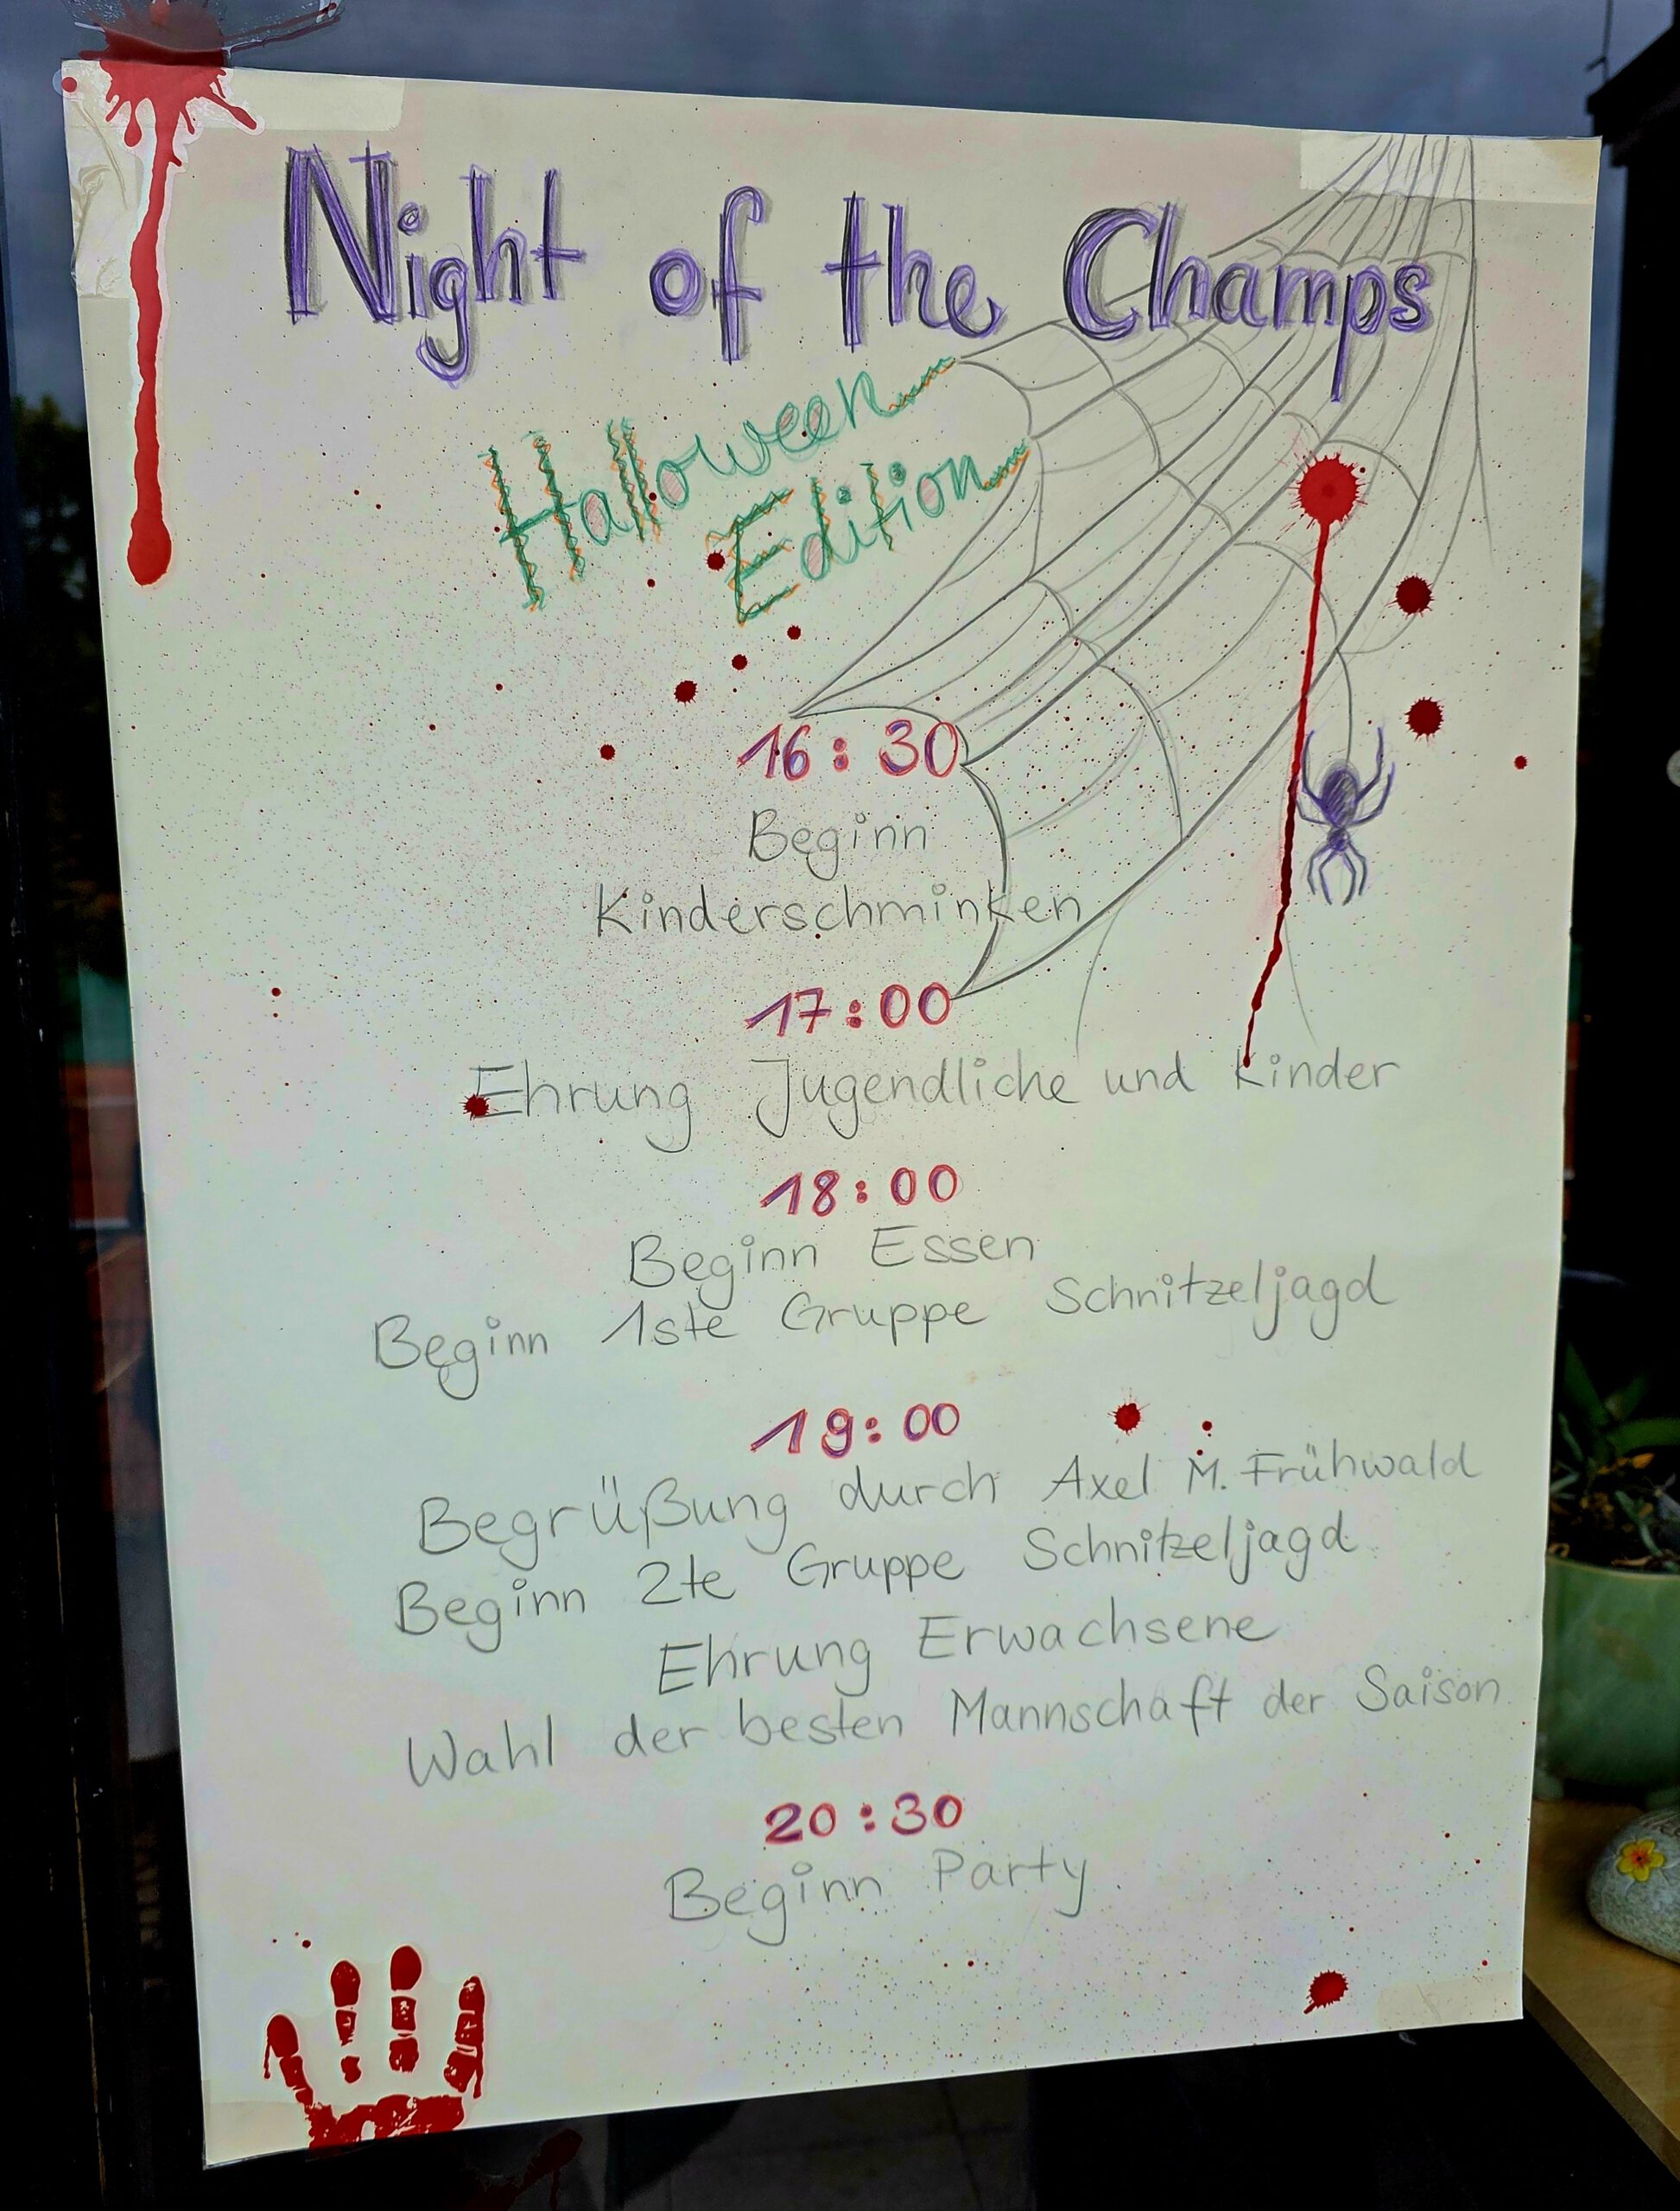 Night of the Champs
Halloween
Edition
16:30
Beginn
Kinderschminken
17:00
Ehrung Jugendliche und Kinder
18:00
Beginn Essen
Beginn 1ste Gruppe Schnitzeljagd
19:00
Begrüßung durch Axel M. Frühwald
Beginn 2te Gruppe Schnitzeljagd
Ehrung Erwachsene
Wahl der besten Mannschaft der Saison
20:30
Beginn Party